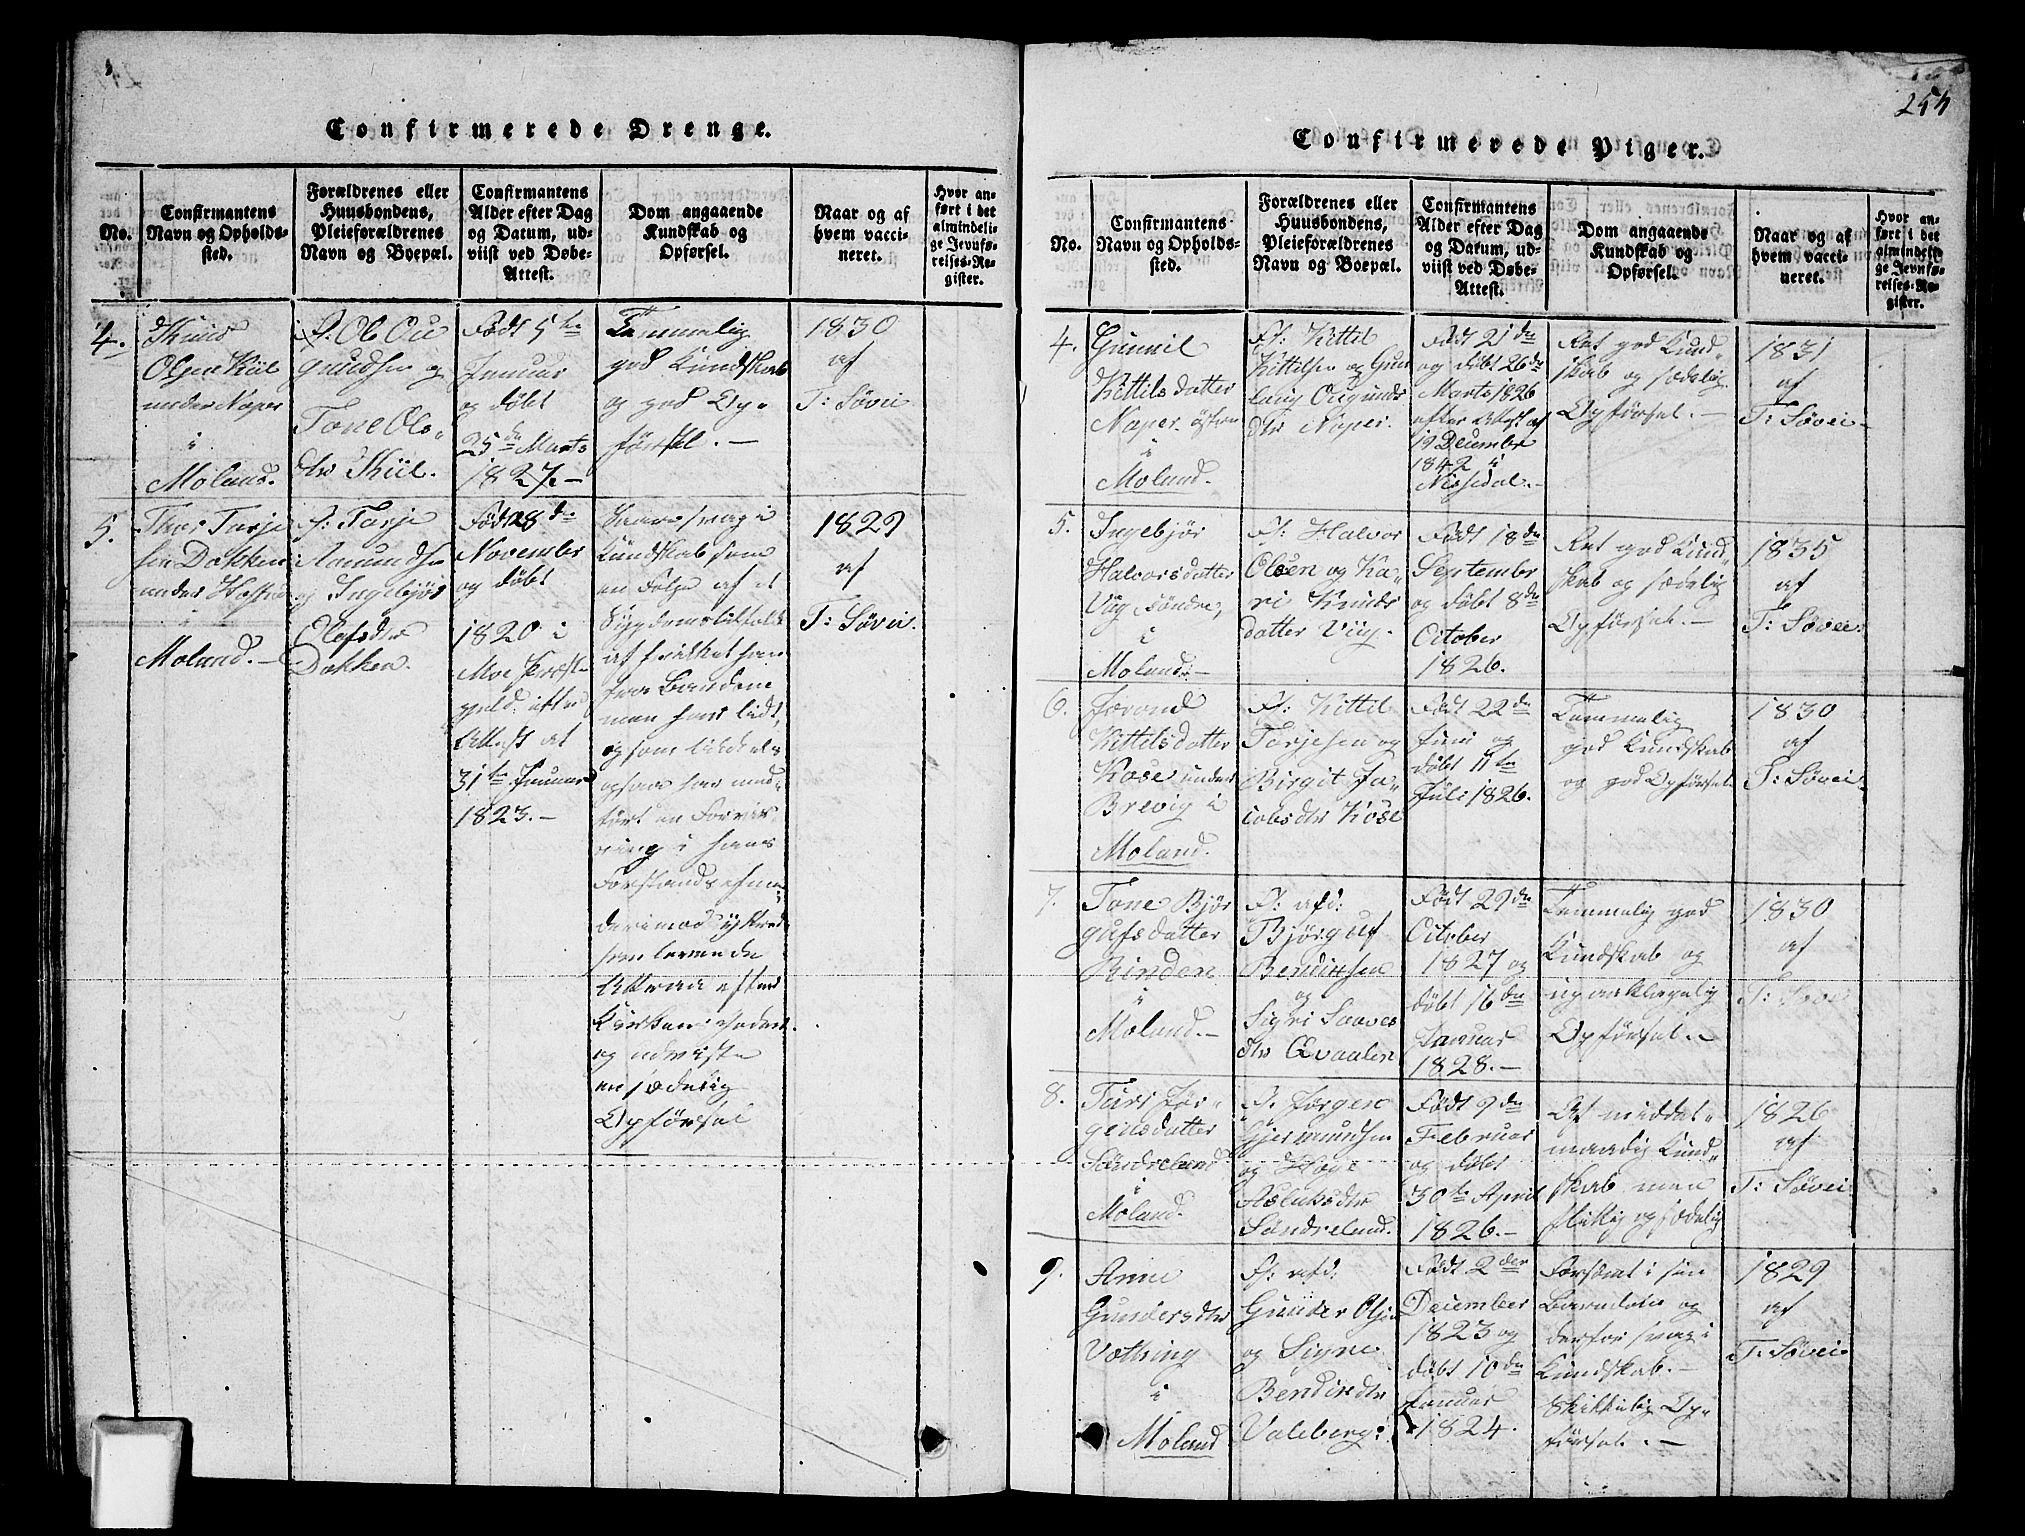 254
Confirmerede Drenge.
No.
Confirmantens
Navn og Opholds-
sted.
Forældrenes eller
Huusbondens,
Pleieforældrenes
Navn og Boepæl.
Confirmantens
Alder efter Dag
og Datum, ud-
viist ved Døbe-
Attest.
Dom angaaende
Kundskab og
Opførsel.
Naar og af
hvem vacci-
neret.
Hvor an-
ført i det
almindeli-
ge Jevnfø-
relses-Re-
gister.
4.
Olsen Kiil
under Naper
i
Moland.
F. Ole
og
Tone Ols-
dtr Kiil.
Født 5te
Januar
og døbt
25de Marts
1827.-
Temmelig
god Kundskab
og god Op-
førsel.-
1830
af
T: Søvei
5.
Tarje
sen Dokken
under
i
Moland.-
F: Tarje
Aamundsen
og Ingebjør
Olefsdtr
Dokken.
Født 28de
November
og døbt
1820 i
Moe Præste-
gjeld efter
Attest af
31te Januar
1823.-
svag i
Kundskab som
en Følge af et
Sygdomstilfælde
af hvilket han
fra Barndom-
men har lidt,
og som
ogsaa har med-
ført en Forvir-
ring i hans
Forstands
derimod
levende
Attraa efter
og udviste
en sædelig
Opførsel
1829
af
T: Søvei.
Confirmerede Piger.
No.
Confirmantens
Navn og Opholds-
sted.
Forældrenes eller
Huusbondens,
Pleieforældrenes
Navn og Boepæl.
Confirmantens
Alder efter Dag
og Datum, ud-
viist ved Døbe-
Attest.
Dom angaaende
Kundskab og
Opførsel.
Naar og af
hvem vacci-
neret.
Hvor an-
ført i det
almindeli-
ge Jevnfø-
relses-Re-
gister.
4.
Gunnil
Kittilsdatter
Naper østre
i
Moland.
F: Kittil
Kittilsen og Gun
laug
dtr Naper.
Født 21de
og døbt 26de
Marts 1826
efter Attest af
19 December
1842 i
Nissedal.-
Ret god Kund-
skab og sædelig
Opførsel.-
1831
af
T: Søvei-
5.
Ingebjør
Halvorsdatter
Viig søndre,
i
Moland.-
F: Halvor
Olsen og Ka-
ri Knuds
datter Viig.
Født 18de
September
og døbt 8de
October
1826.
Ret god Kund
skab og sædelig
Opførsel.-
1835
af
T: Søvei.
6.
Jorond
Kittilsdatter
Kose under
Brevig i
Moland.
F: Kittil
Tarjesen og
Birgit Ja-
cobsdtr Kose
Født 22de
Juni og
døbt 11te
Juli 1826.
Temmelig
god Kundskab
og god Opførsel.
1830
af
T: Søvei.
7.
Tone Bjør
gufsdatter
Rinden
i
Moland.-
F: afd:
Bjørguf
Bendixsen
og
Sigri Saaves
dtr Qvaalen
Født 29de
October
1827 og
døbt 16de
Januar
1828.-
Temmelig god
Kundskab og
upaaklagelig
Opførsel.-
1830
af
T: Søvei
8.
Turi Jør-
gensdatter
Søndreland
i
Moland.
F: Jørgen
Gjermundsen
og Høge
Aslaksdtr
Søndreland.
Født 9de
Februar
og døbt
30te April
1826.-
Af middel-
maadig Kund-
skab men
flittig og sædelig
1826
af
T: Søvei
9.
Anne
Gundersdtr
Vætting
i
Moland
F: afd:
Gunder Olsen
og Signe
Bendixdtr
Valeberg:
Født 2den
December
1823 og
døbt 10de
Januar
1824.
Forsømt i sin
Barndom og
derfor svag i
Kundskab.-
Skikkelig Op-
førsel.-
1829
af
T: Søvei